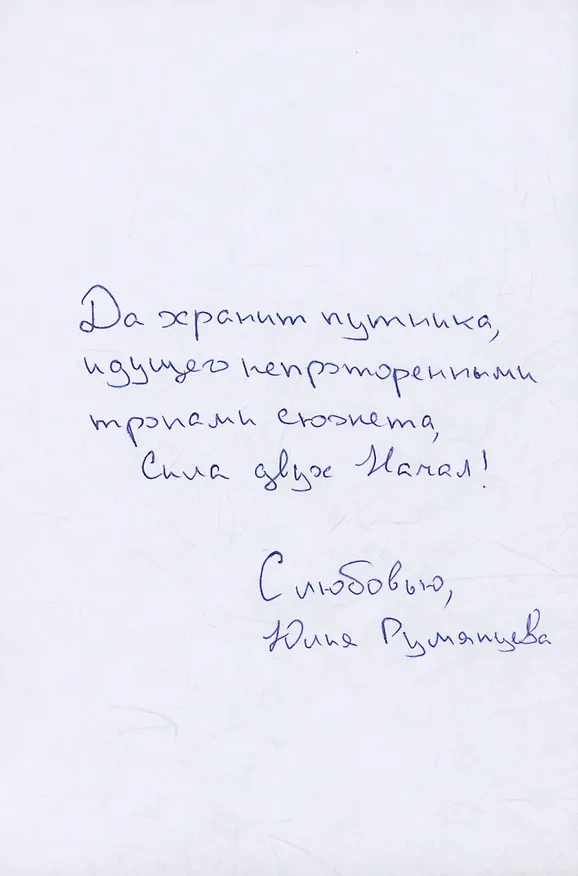 Да хранит путника,
идущего непроторенными
тропами сюжета,
Сила двух Начал!
С любовью,
Юлия Румянцева